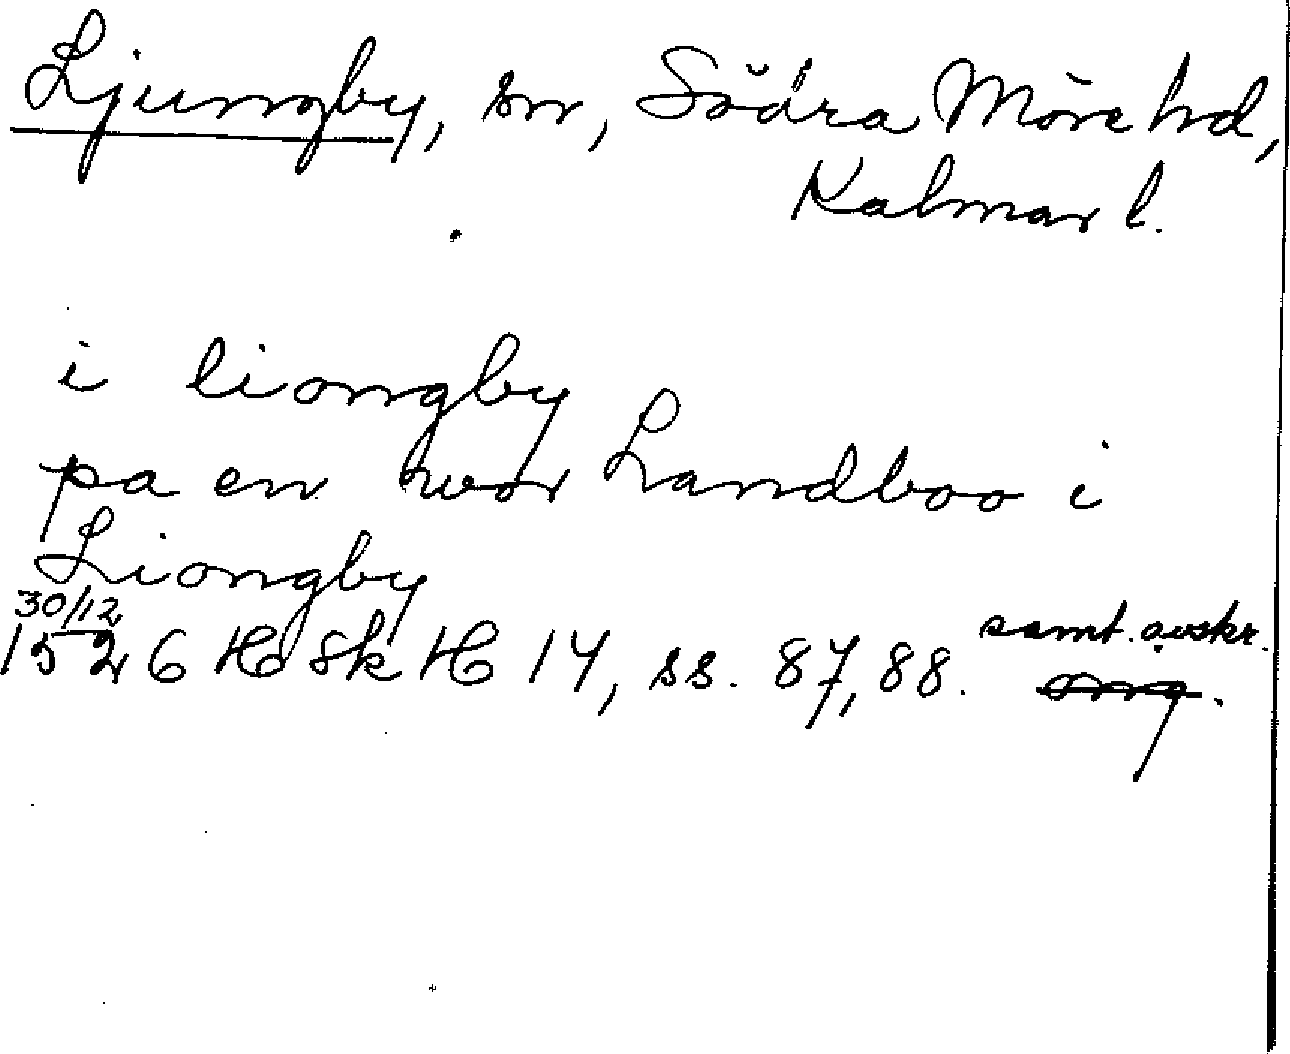 Ljungby, sn, Södra Möre hd,
Kalmar l.
i liongby
pa en wor Landboo i
Liongby
30/12
1526 HSkH 14, ss. 87, 88. samt. avskr.